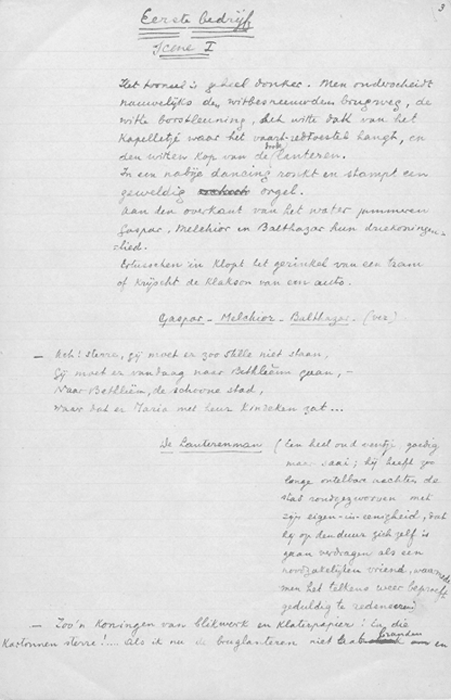 3
Eerste bedrijf
Scene I
Het tooneel is geheel donker. Men onderscheidt
nauwelijks den witbesneeuwden brugweg, de
witte borstleuning, het witte dak van het
kapelletje waar het vaart-redtoestel hangt, en
den witten kop van de lanteren.
In een nabije dancing ronkt en stampt een
geweldig orgel.
Aan den overkant van het water jammeren
Gaspar, Melchior en Balthazar hun driekoningen-
lied.
Ertusschen in klopt het gerinkel van een tram
of krijscht de klakson van een auto.
Gaspar - Melchior - Balthazar. (ver)
— Ach! sterre, gij moet er zoo stille niet staan,
Gij moet er vandaag naar Bethleëm gaan, -
Naar Bethleëm, de schoone stad,
Waar dat er Maria met heur kindeken zat...
De Lanterenman (Een heel oud ventje goedig
maar saai; hij heeft zoo
lange ontelbare nachten de
stad rondgezworven met
zijn eigen-in-eenigheid, dat
hij op den duur zich zelf is
gaan verdragen als een
noodzakelijken vriend, waarmede
men het telkens weer beproeft
geduldig te redeneeren)
— Zoo'n koningen van blikwerk en klaterpapier! En die
kartonnen sterre!.... Als ik nu de bruglanteren niet branden en